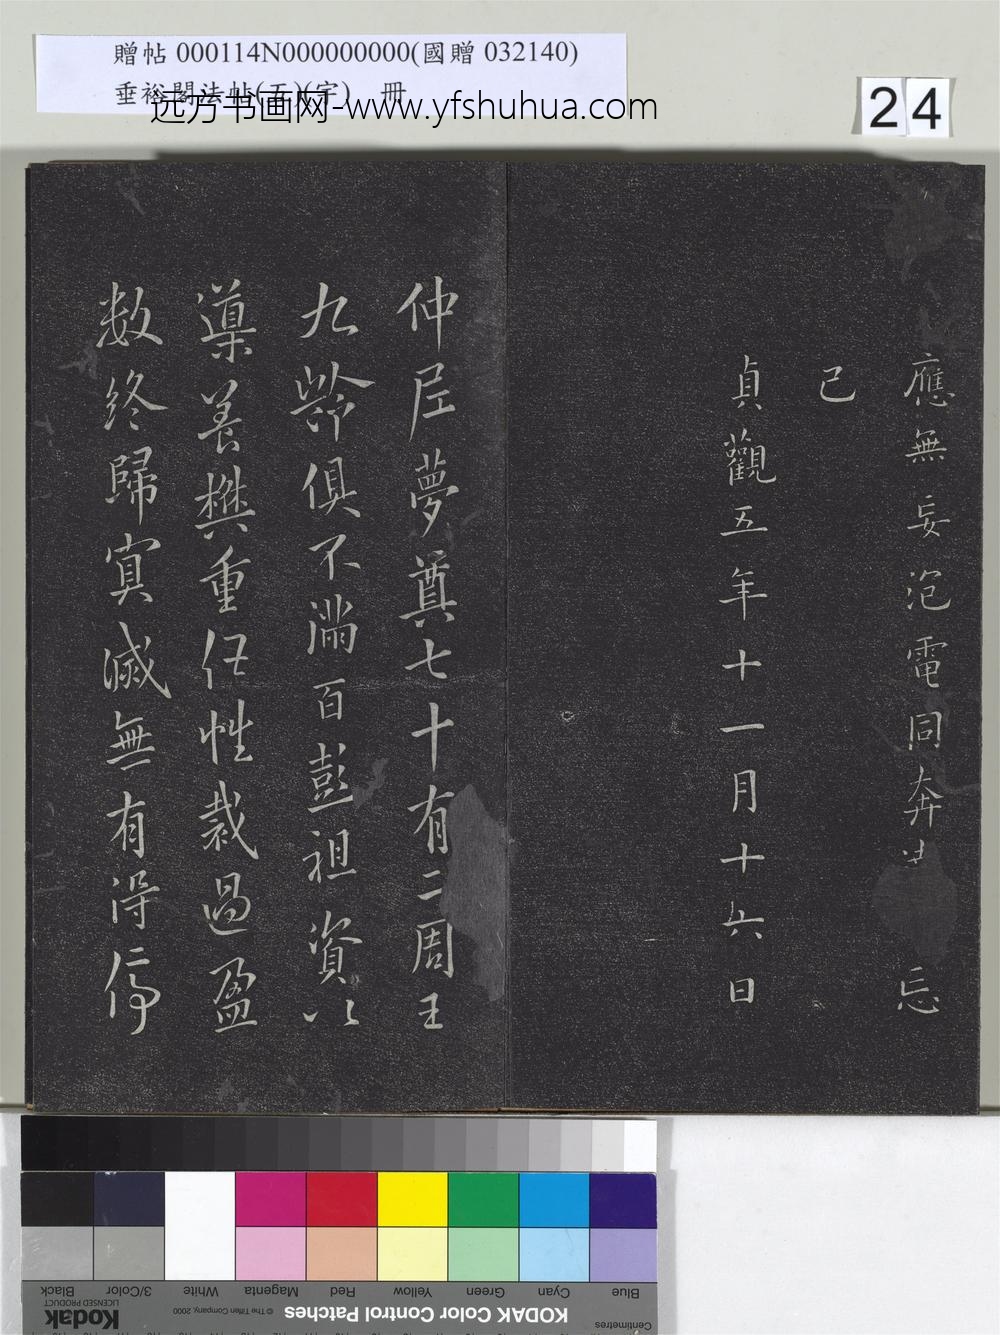 贈帖 000114N000000000(國贈 032140)
垂裕閣法帖(五)(字) 冊
远方书画网-www.yfshuhua.com
24
應無妄泡電同奔忘
已
貞觀五年十一月十六日
仲尼夢奠七十有二周王
九齡俱不滿百彭祖資以
導養樊重任性裁過盈
數終歸冥滅無有得停
Blue
Cyan
Green
Yellow
Red
Magenta
White
3/Color
Black
Centimetres
KODAK Color Control Patches
© The Tiffen Company, 2000
Kodak
LICENSED PRODUCT